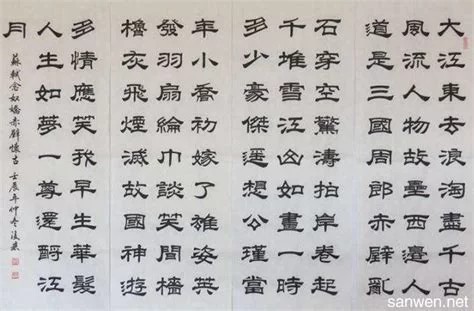 大江東去浪淘盡千古
風流人物故壘西邊人
道是三國周郎赤壁亂
石穿空驚濤拍岸卷起
千堆雪江山如畫一時
多少豪傑遥想公瑾當
年小喬初嫁了雄姿英
發羽扇綸巾談笑間檣
櫓灰飛煙滅故國神遊
多情應笑我早生華髮
人生如夢一尊還酹江
月
蘇軾念奴嬌赤壁懷古 壬辰年仲冬
sanwen.net